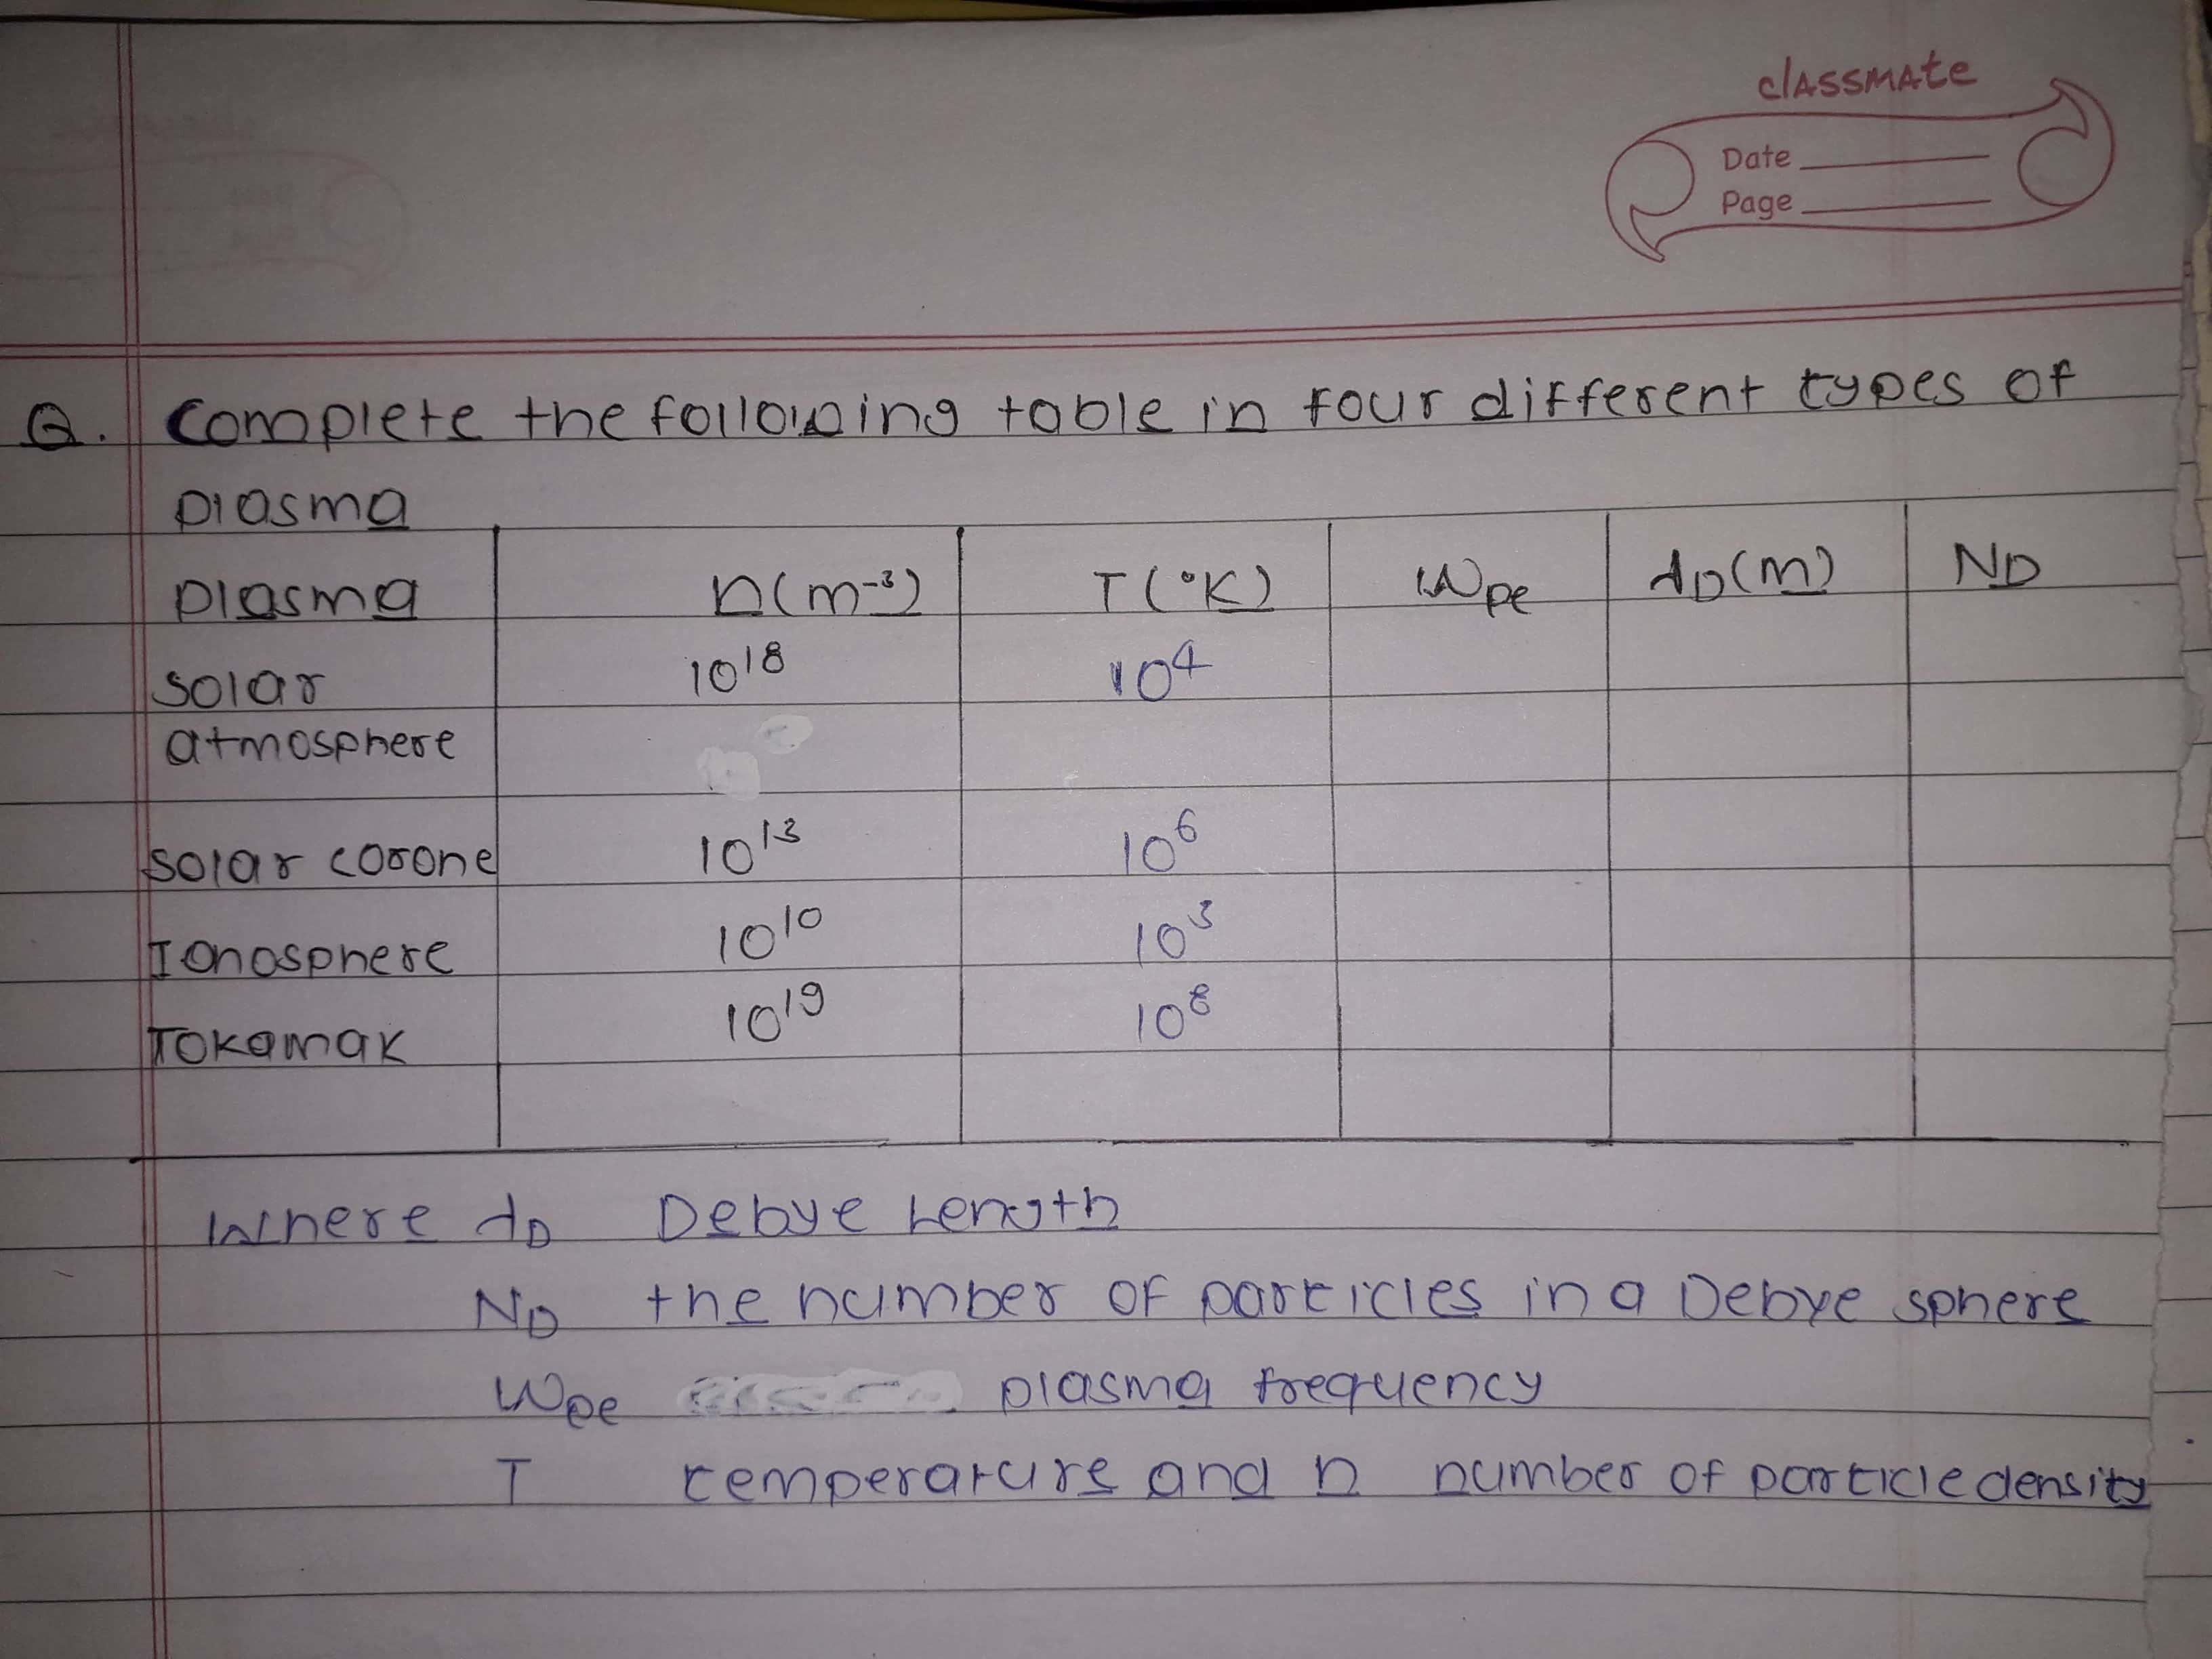 classmate
Date
Page
Q. Complete the following table in four different types of
plasma
plasma n(m⁻³) T(°K) ωpe λD(m) ND
solar 10¹⁸ 10⁴
atmosphere
solar corone 10¹³ 10⁶
Ionosphere 10¹⁰ 10³
Tokamak 10¹⁹ 10⁸
Where λD Debye Length
ND the number of particles in a Debye sphere
ωpe plasma frequency
T temperature and n number of particle density